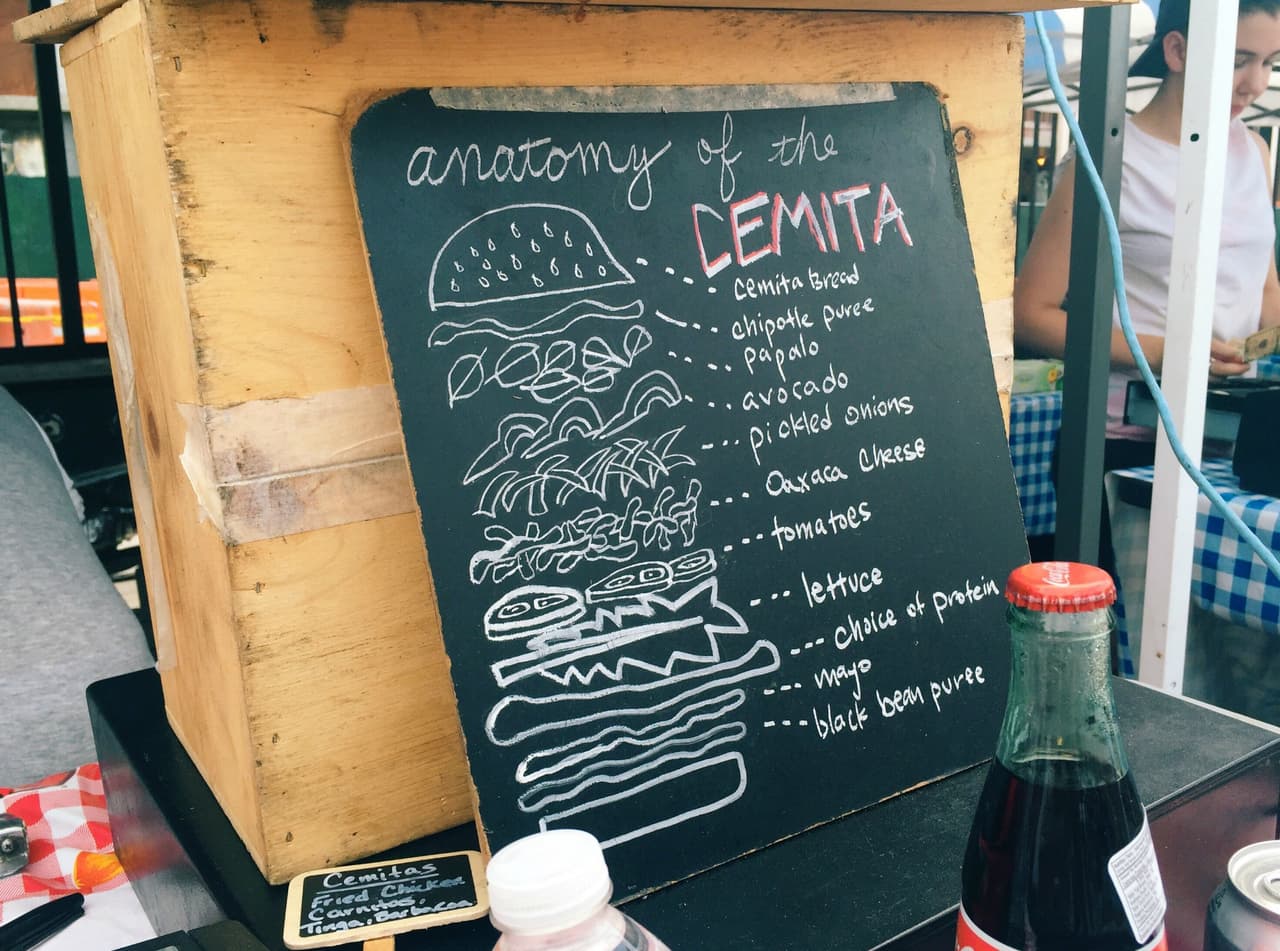 anatomy of the
CEMITA
cemita Bread
chipotle puree
papalo
avocado
pickled onions
Oaxaca Cheese
tomatoes
lettuce
choice of protein
mayo
black bean puree
Cemitas
Fried Chicken
Carnitas,
Tinga, Barbacoa
Coca-Cola